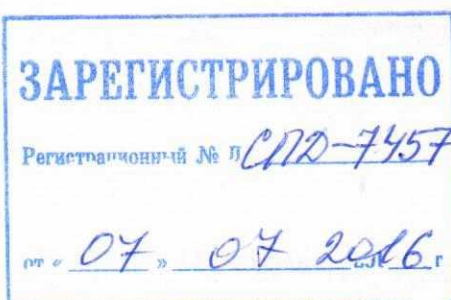 ЗАРЕГИСТРИРОВАНО
Регистрационный № П СПД-7457
от « 07 » 07 2016 г